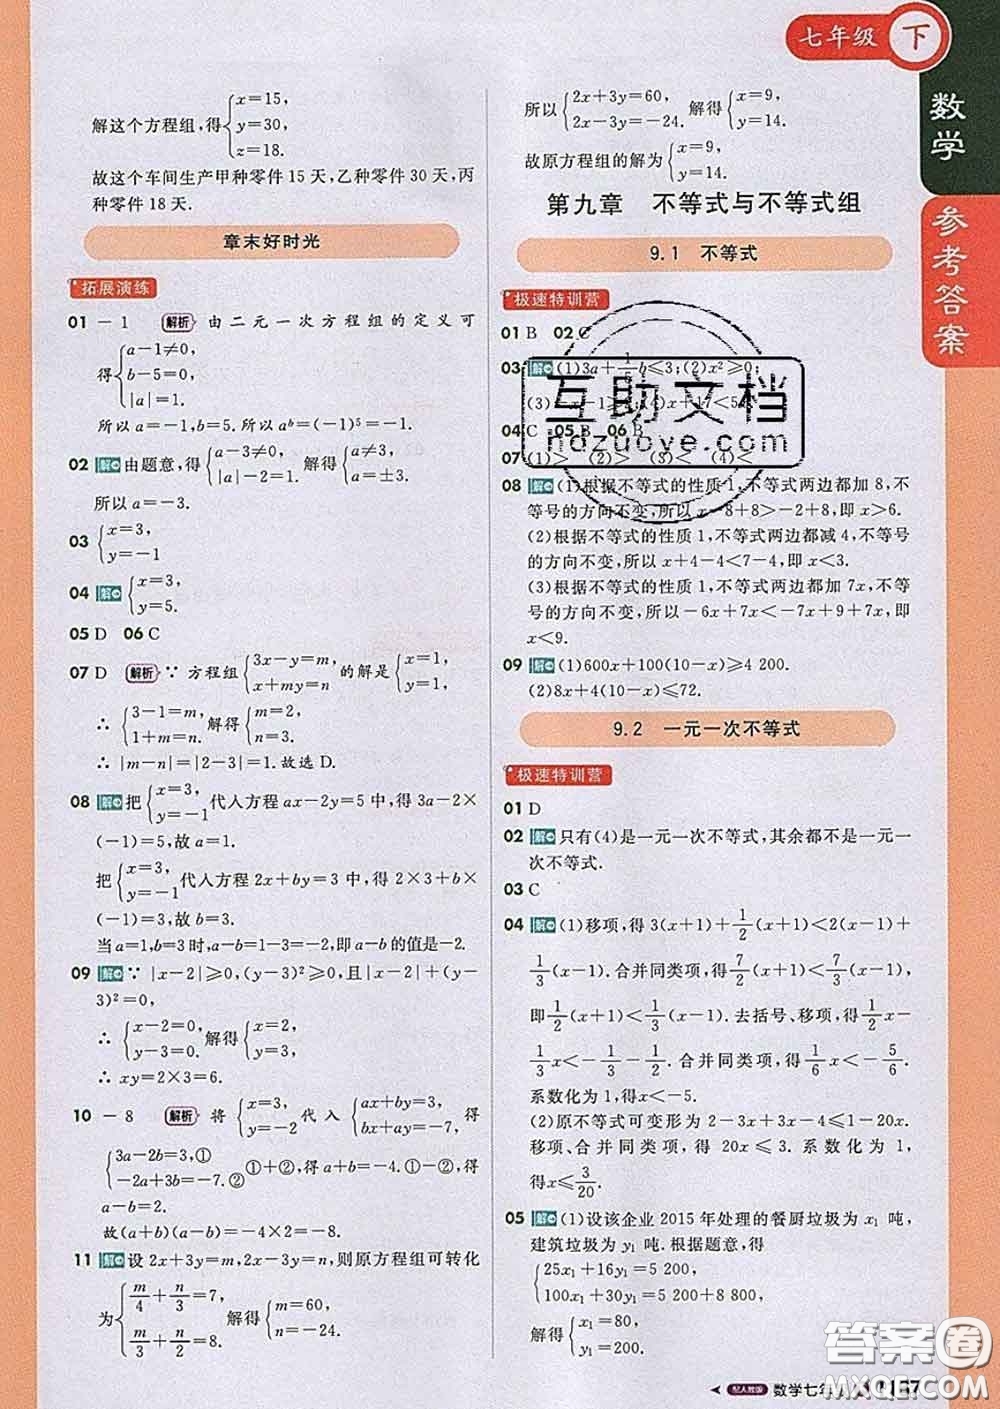 七年级 下
数学
参考答案
解这个方程组,得{x=15, y=30, z=18.
故这个车间生产甲种零件 15 天,乙种零件 30 天,丙
种零件 18 天.
章末好时光
拓展演练
01 -1 解析 由二元一次方程组的定义可
得{a-1≠0, b-5=0, |a|=1.
所以 a=-1,b=5. 所以 a^b=(-1)^5=-1.
02 解 由题意,得{a-3≠0, |a|-2=1. 解得{a≠3, a=±3.
所以 a=-3.
03 {x=3, y=-1
04 解 {x=3, y=5.
05 D 06 C
07 D 解析 ∵ 方程组{3x-y=m, x+my=n 的解是{x=1, y=1,
∴ {3-1=m, 1+m=n. 解得{m=2, n=3.
∴ |m-n|=|2-3|=1. 故选 D.
08 解 把{x=3, y=-1 代人方程 ax-2y=5 中,得 3a-2×
(-1)=5,故 a=1.
把{x=3, y=-1 代人方程 2x+by=3 中,得 2×3+b×
(-1)=3,故 b=3.
当 a=1,b=3 时,a-b=1-3=-2,即 a-b 的值是-2.
09 解 ∵ |x-2|≥0,(y-3)²≥0,且|x-2|+(y-
3)²=0,
∴ {x-2=0, y-3=0. 解得{x=2, y=3,
∴ xy=2×3=6.
10 -8 解析 将{x=3, y=-2 代入{ax+by=3, bx+ay=-7, 得
{3a-2b=3,① -2a+3b=-7.② ①+②,得 a+b=-4. ①-②,得
a-b=2.
故(a+b)(a-b)=-4×2=-8.
11 解 设 2x+3y=m,2x-3y=n,则原方程组可转化
为{m/4+n/3=7, m/3+n/2=8. 解得{m=60, n=-24.
所以{2x+3y=60, 2x-3y=-24. 解得{x=9, y=14.
故原方程组的解为{x=9, y=14.
第九章 不等式与不等式组
9.1 不等式
极速特训营
01 B 02 C
03 解 (1)3a+ b≤3;(2)x²≥0;
04 C 05 B 06 B
07 (1)> (2)> (3)< (4)
08 解 (1)根据不等式的性质 1,不等式两边都加 8,不
等号的方向不变,所以 x-8+8>-2+8,即 x>6.
(2)根据不等式的性质 1,不等式两边都减 4,不等号
的方向不变,所以 x+4-4<7-4,即 x<3.
(3)根据不等式的性质 1,不等式两边都加 7x,不等
号的方向不变,所以-6x+7x<-7x+9+7x,即
x<9.
09 解 (1)600x+100(10-x)≥4 200.
(2)8x+4(10-x)≤72.
9.2 一元一次不等式
极速特训营
01 D
02 解 只有(4)是一元一次不等式,其余都不是一元一
次不等式.
03 C
04 解 (1)移项,得 3(x+1)+1/2(x+1)<2(x-1)+
1/3(x-1). 合并同类项,得 7/2(x+1)<7/3(x-1),
即 1/2(x+1)<1/3(x-1). 去括号、移项,得 1/2x-
1/3x<-1/3-1/2. 合并同类项,得 1/6x<-5/6.
系数化为 1,得 x<-5.
(2)原不等式可变形为 2-3x+3x-4≤1-20x.
移项、合并同类项,得 20x≤3. 系数化为 1,
得x≤3/20.
05 解 (1)设该企业 2015 年处理的餐厨垃圾为 x₁ 吨,
建筑垃圾为 y₁ 吨. 根据题意,得
{25x₁+16y₁=5 200, 100x₁+30y₁=5 200+8 800,
解得{x₁=80, y₁=200.
配人教版 数学七年
互助文档
hdzuoye.com
答案圈